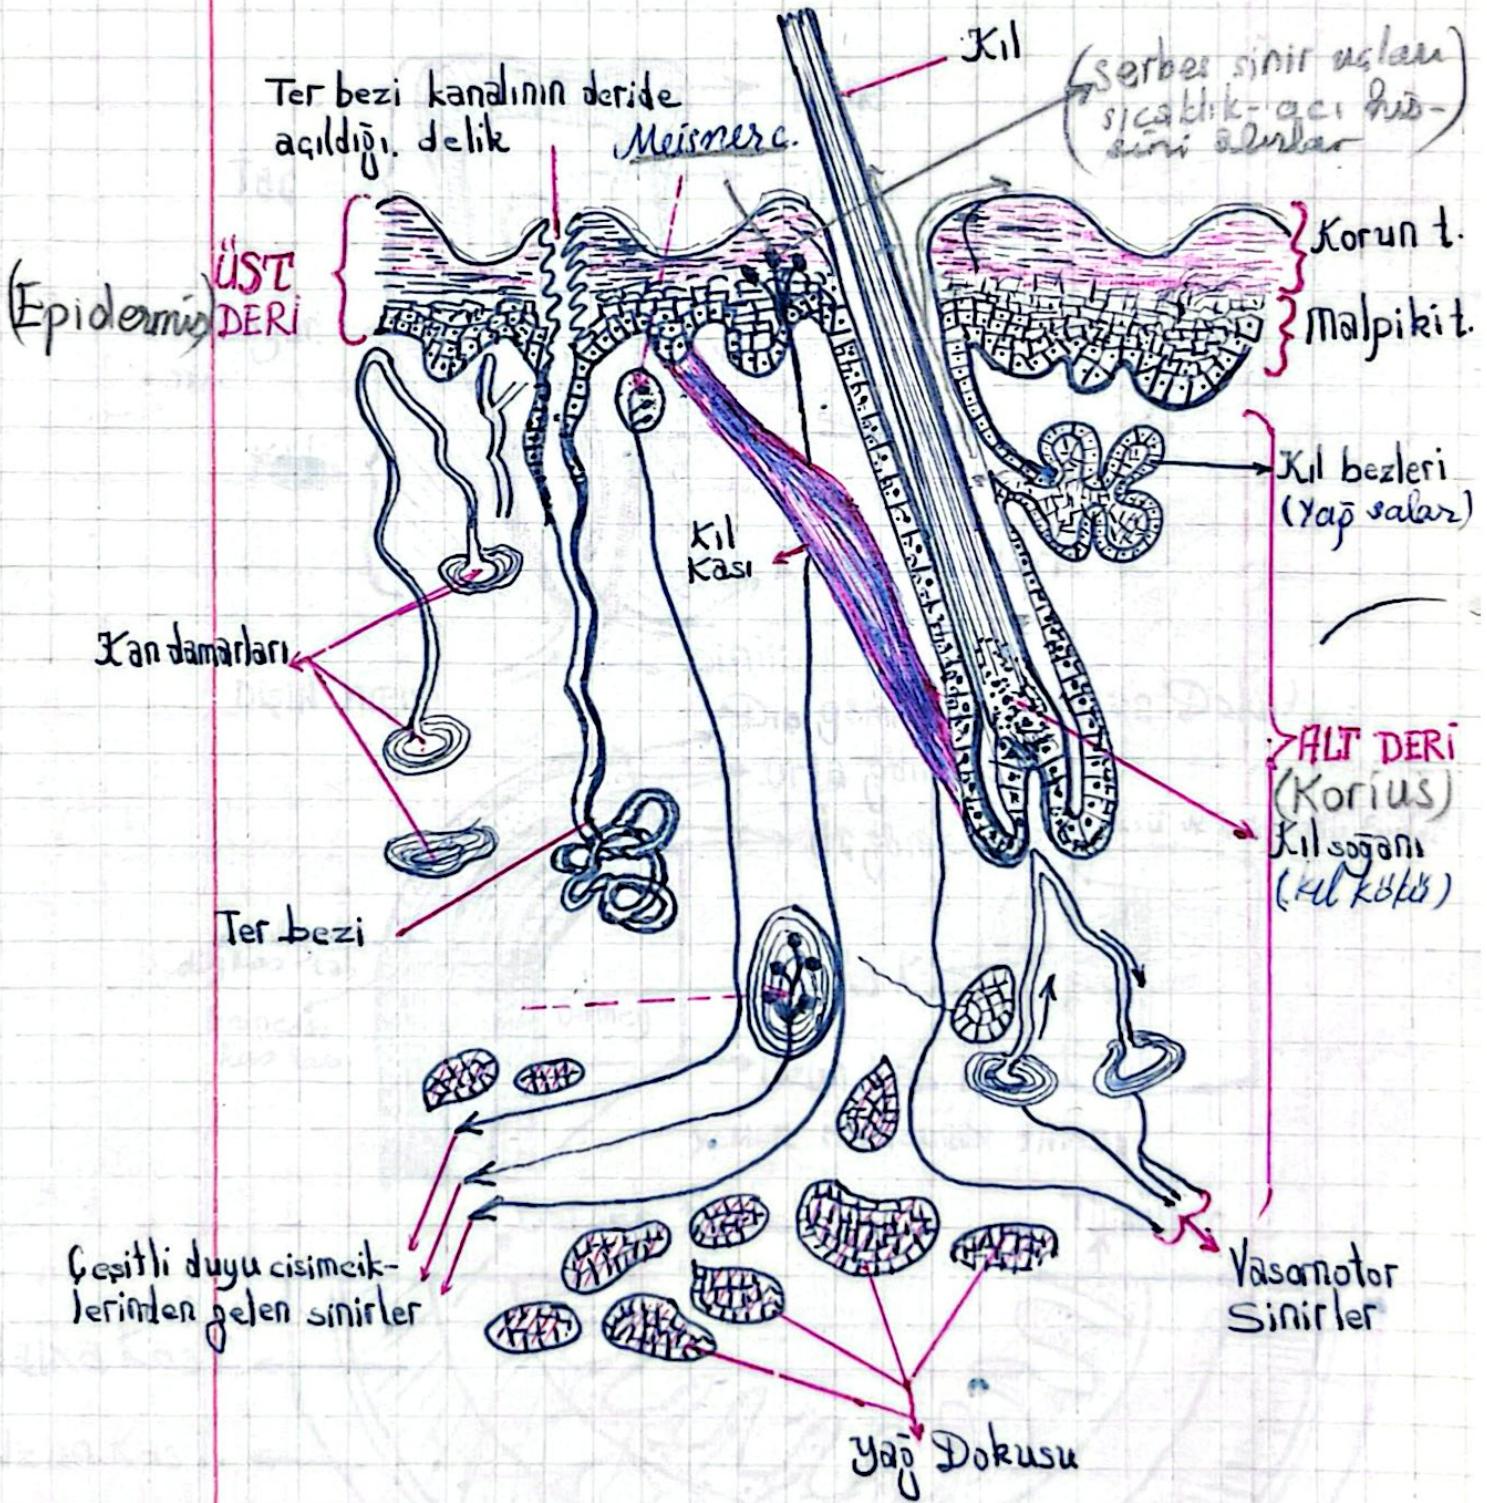 Kıl
(serbes sinir uçları
sıcaklık-acı his-
sini alırlar)
Ter bezi kanalının deride
açıldığı delik
Meisner c.
Korun t.
ÜST
DERİ
(Epidermis)
Malpiki t.
Kıl bezleri
(Yağ salar)
Kıl
Kası
Kan damarları
ALT DERİ
(Korius)
Kıl soğanı
(kıl kökü)
Ter bezi
Çeşitli duyu cisimcik-
lerinden gelen sinirler
Vasomotor
Sinirler
Yağ Dokusu